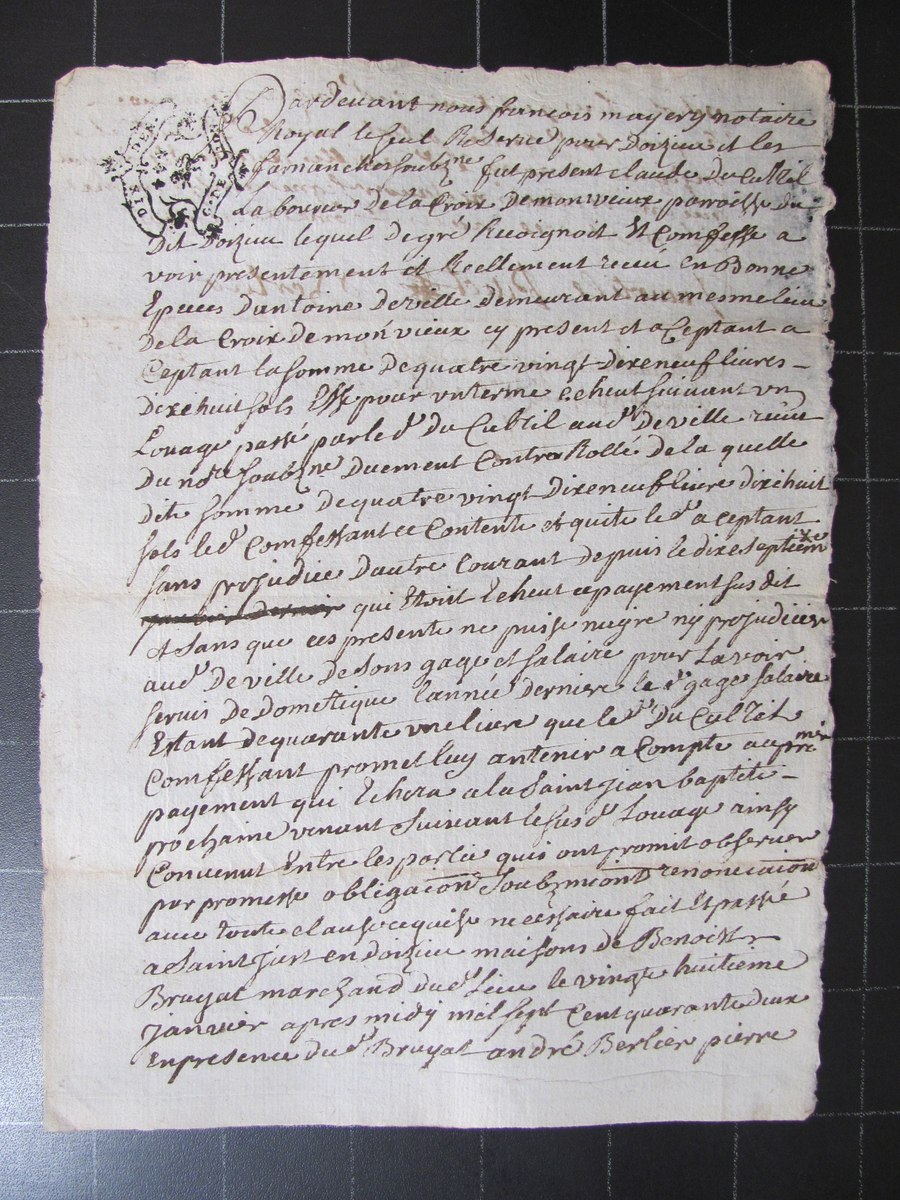 Pardevant nous francois mayery notaire
Royal le seul Reservé pour Doizieu et les
farnanches soubzne fut present claude du Cultil
Laboureur de la Croix De monvieux parroisse du
Dit Doizieu lequel de gré Recognoit Et Comfesse a
voir presentement et Reellement receu en Bonne
Epeces D'antoine Deville demeurant au mesme lieu
De la Croix De monvieux cy present et aCeptant a
Ceptant la somme De quatre vingt Dixeneuf livres
Dixehuit sols Esse pour un terme echeut suivant un
Louage passé par le dt du Cultil audt De ville receu
Du nore soubzne Duement Contre Rollé De la quelle
dite somme De quatre vingt Dixeneuf livre dixehuit
sols le dt Comfessant ce Contente et quite le dt aceptant
sans prejudice D'autre Courant depuis le dixe septiem
qui Etoit Echeut ce payement sus dit
et sans que ces presente ne puisse negre ny prejudicier
audt De ville De sons gage et salaire pour Lavoir
servis De dometique l'année derniere le dt gage salaire
Estant de quarante une livre que le dt Du Cultil
Comfessant promet luy antenir a Compte au prmier
payement qui Echera a la Saint Jian baptite
prochaine venant suivant le sus dt Louage ainsy
Convenut Entre les partie quis ont promit observer
par promesse obligaiom soubzmiom renonceaiom
avec toute clause requise necessaire fait Et passé
a Saint Just en doizieu maisons de Benoist
Bruyat marchand dudt lieu le vingt huitieme
Janvier apres midy mil sept Cent quarante deux
En presence du dt Bruyat andré Berlier pierre